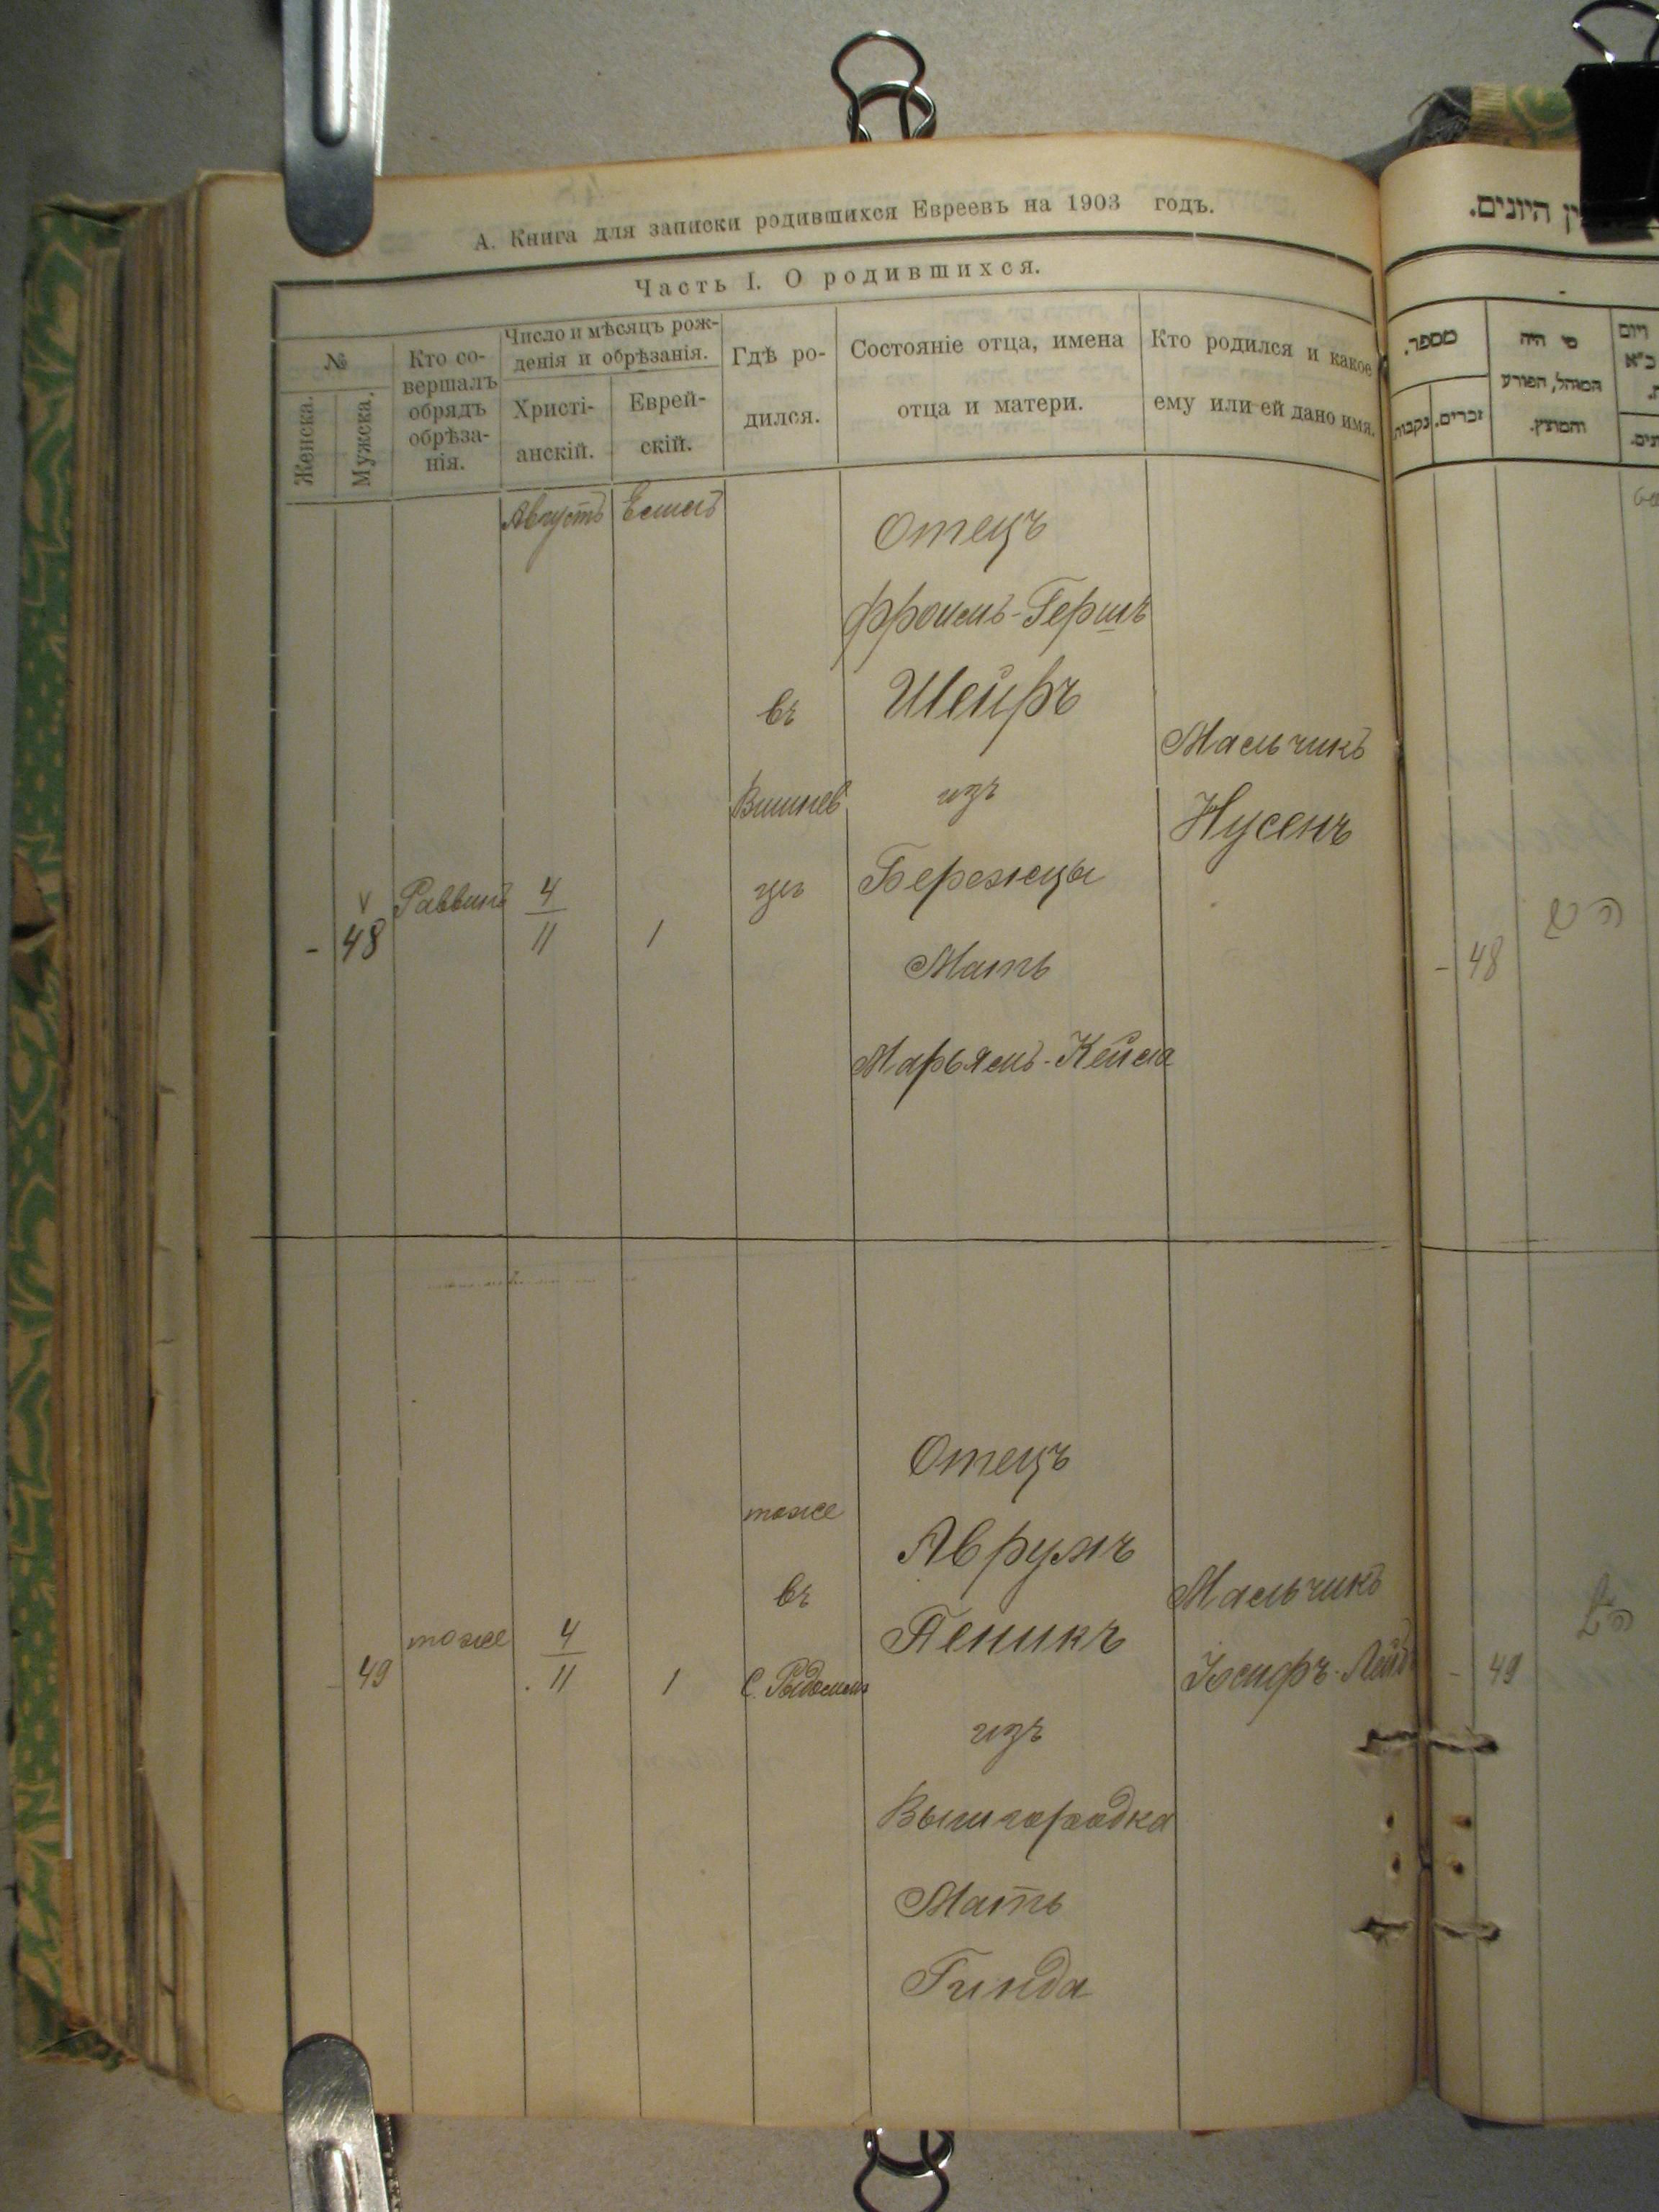 А. Книга для записки родившихся Евреевъ на 1903 годъ.
Часть I. О родившихся.
№
Женска.
Мужска.
Кто со-
вершалъ
обрядъ
обрѣза-
нія.
Число и мѣсяцъ рож-
денія и обрѣзанія.
Христі-
анскій.
Еврей-
скій.
Гдѣ ро-
дился.
Состояніе отца, имена
отца и матери.
Кто родился и какое
ему или ей дано имя.
Августъ
- 48
Раввинъ
4
11
1
въ
Вишнев
цѣ
Отецъ
Фроимъ-Гершъ
Шейръ
изъ
Бережцы
Мать
Марьямъ-Кейла
Мальчикъ
Нусенъ
- 49
тоже
4
11
1
тоже
въ
Отецъ
Аврумъ
Пеникъ
изъ
Вышгородка
Мать
Гинда
Мальчикъ
מספר.
זכרים.
נקבות
מי היה
המוהל, הפורע
והמוצץ.
- 48
- 49